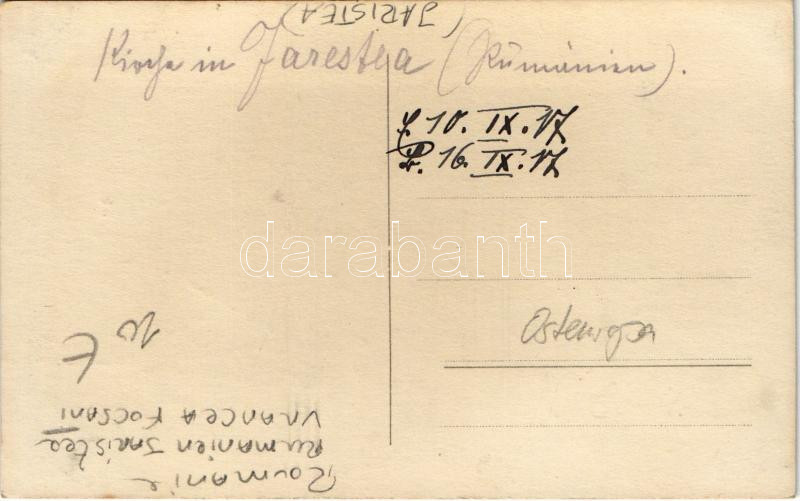 (JARISTEA)
Kirche in Jarestea (Rumänien).
f. 10. IX. 17
Er. 16. IX. 17
darabanth
Osteuropa
10 E
Roumanie
Rumanien Jaristea
VRANCEA FOCSANI